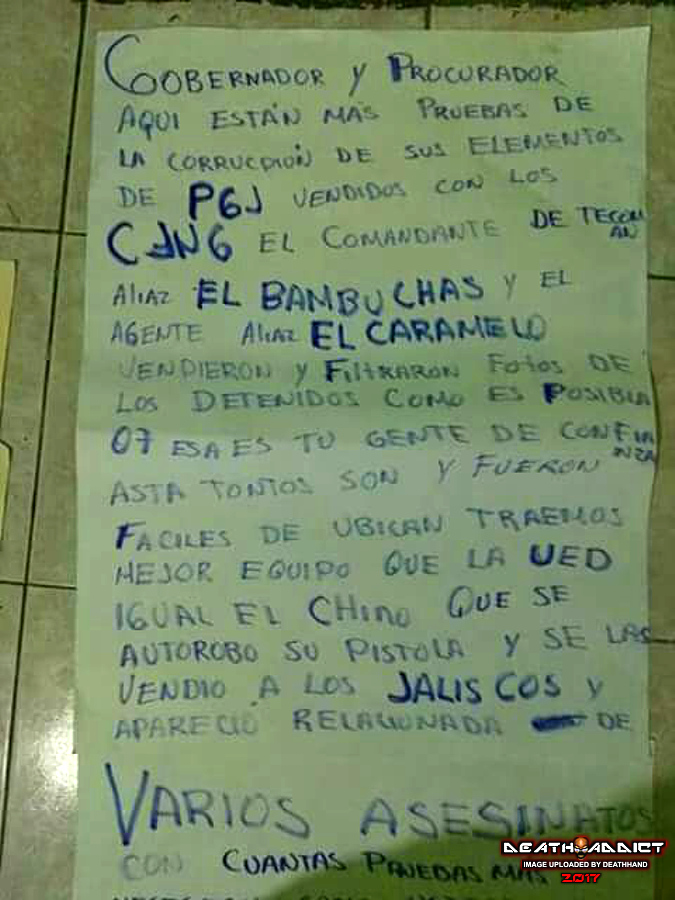 GOBERNADOR Y PROCURADOR
AQUI ESTÁN MAS PRUEBAS DE
LA CORRUCPION DE SUS ELEMENTOS
DE PGJ VENDIDOS CON LOS
CJNG EL COMANDANTE DE TECOMAN
ALIAZ EL BAMBUCHAS Y EL
AGENTE ALIAZ EL CARAMELO
VENDIERON Y FILTRARON FOTOS DE
LOS DETENIDOS COMO ES POSIBLA
07 ESA ES TU GENTE DE CONFIANZA
ASTA TONTOS SON Y FUERON
FACILES DE UBICAN TRAEMOS
MEJOR EQUIPO QUE LA UED
IGUAL EL CHINO QUE SE
AUTOROBO SU PISTOLA Y SE LAS
VENDIO A LOS JALISCOS Y
APARECIÓ RELACIONADA DE
VARIOS ASESINATOS
CON CUANTAS PRUEBAS MAS
DEATH ADDICT
IMAGE UPLOADED BY DEATHHAND
2017